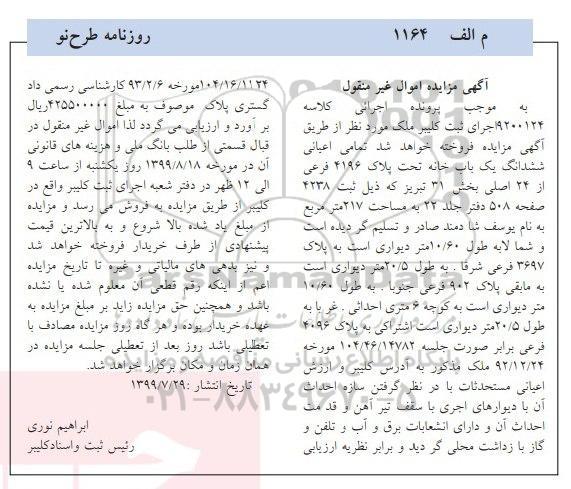 م الف    ۱۱۶۴
روزنامه طرح‌نو
آگهی مزایده اموال غیر منقول
به موجب پرونده اجرائی کلاسه
۹۲۰۰۱۲۴اجرای ثبت کلیبر ملک مورد نظر از طریق
آگهی مزایده فروخته خواهد شد تمامی اعیانی
ششدانگ یک باب خانه تحت پلاک ۴۱۹۶ فرعی
از ۲۴ اصلی بخش ۳۱ تبریز که ذیل ثبت ۴۲۳۸
صفحه ۵۰۸ دفتر جلد ۲۲ به مساحت ۲۱۷متر مربع
به نام یوسف شا دمند صادر و تسلیم گر دیده است
و شما لابه طول ۱۰/۶۰متر دیواری است به پلاک
۳۶۹۷ فرعی شرقا . به طول ۲۰/۵متر دیواری است
به مابقی پلاک ۹۰۲ فرعی جنوبا . به طول ۱۰/۶۰
متر دیواری است به کوچه ۶ متری احداثی . غر با به
طول ۲۰/۵متر دیواری است اشتراکی به پلاک ۴۰۹۶
فرعی برابر صورت جلسه ۱۰۴/۴۶/۱۴۷۸۲ مورخه
۹۲/۱۲/۲۴ ملک مذکور به آدرس کلیبر و ارزش
اعیانی مستحدثات با در نظر گرفتن سازه احداث
آن با دیوارهای اجری با سقف تیر آهن و قد مت
احداث آن و دارای انشعابات برق و آب و تلفن و
گاز با زداشت محلی گر دید و برابر نظریه ارزیابی
۱۰۴/۱۶/۱۱۲۴مورخه ۹۳/۲/۶ کارشناسی رسمی داد
گستری پلاک موصوف به مبلغ ۴۲۵۵۰۰۰۰۰ریال
بر آورد و ارزیابی می گردد لذا اموال غیر منقول در
قبال قسمتی از طلب بانک ملی و هزینه های قانونی
آن در مورخه ۱۳۹۹/۸/۱۸ روز یکشنبه از ساعت ۹
الی ۱۲ ظهر در دفتر شعبه اجرای ثبت کلیبر واقع در
کلیبر از طریق مزایده به فروش می رسد و مزایده
از مبلغ یاد شده بالا شروع و به بالاترین قیمت
پیشنهادی از طرف خریدار فروخته خواهد شد
و نیز بدهی های مالیاتی و غیره تا تاریخ مزایده
اعم از اینکه رقم قطعی آن معلوم شده یا نشده
باشد و همچنین حق مزایده زاید بر مبلغ مزایده به
عهده خریدار بوده و هر گاه روز مزایده مصادف با
تعطیلی باشد روز بعد از تعطیلی جلسه مزایده در
همان زمان و مکان برگزار خواهد شد.
تاریخ انتشار :۱۳۹۹/۷/۲۹
ابراهیم نوری
رئیس ثبت واسنادکلیبر
پایگاه اطلاع رسانی مناقصه و مزایده
۰۲۱-۸۸۳۴۹۶۷۰-۵